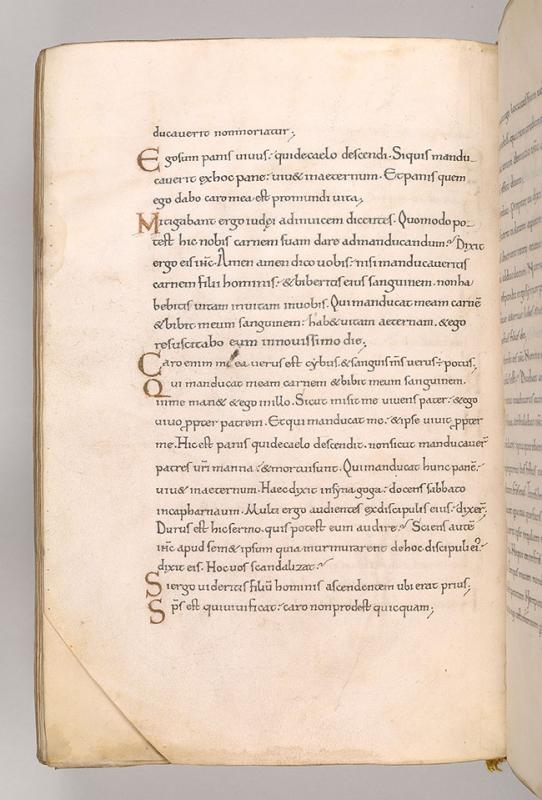 ducaverit non moriatur;
Ego sum panis vivus. qui de caelo descendi. Si quis mandu-
caverit ex hoc pane. viu& in aeternum. Et panis quem
ego dabo caro mea est pro mundi vita;
Mitigabant ergo iudęi ad invicem dicentes. Quomodo po-
test hic nobis carnem suam dare ad manducandum? Dixit
ergo eis ihc. Amen amen dico vobis. nisi manducaveritis
carnem filii hominis. & biberitis eius sanguinem. non ha
bebitis vitam in vitam in vobis. Qui manducat meam carnē
& bibit meum sanguinem. hab& vitam aeternam. & ego
resuscitabo eum in novissimo die;
Caro enim mea verus est cybus. & sanguis ms verus potus;
Qui manducat meam carnem & bibit meum sanguinem.
in me man& & ego in illo. Sicut misit me vivens pater. & ego
vivo ppter patrem. Et qui manducat me. & ipse vivit ppter
me. Hic est panis qui de caelo descendit. non sicut manducaver̄
patres vr̄i manna. & mortui sunt. Qui manducat hunc panē.
viu& in aeternum. Haec dixit in synagoga. docens sabbato
in capharnaum. Multi ergo audientes ex discipulis eius. dixer̄.
Durus est hic sermo. quis potest eum audire? Sciens autē
ihc apud sem& ipsum quia murmurarent de hoc discipuli ei'.
dixit eis. Hoc vos scandalizat?
Si ergo videritis filiū hominis ascendentem ubi erat prius;
Sps est qui vivificat. caro non prodest quicquam;